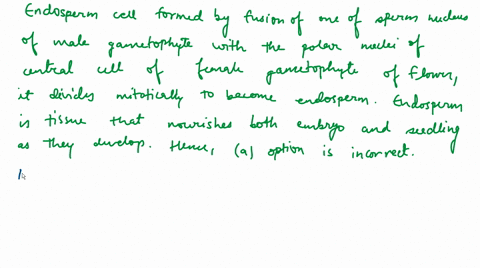 Endosperm cell formed by fusion of one of sperm nucleus
of male gametophyte with the polar nuclei of
central cell of female gametophyte of flower,
it divides mitotically to become endosperm. Endosperm
is tissue that nourishes both embryo and seedling
as they develop. Hence, (a) option is incorrect.